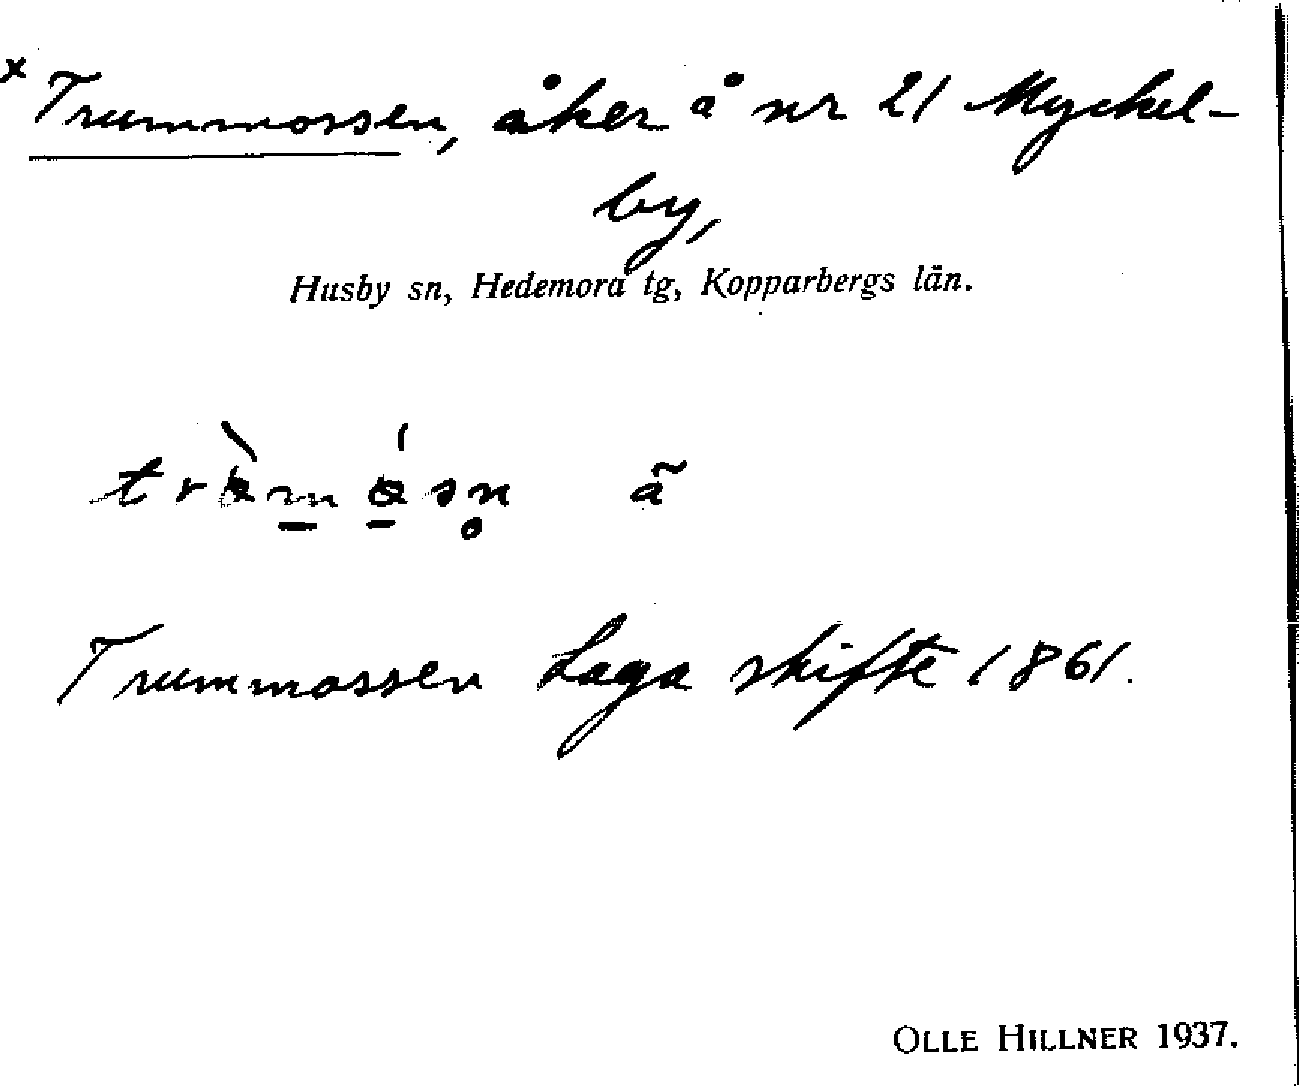 x Trummossen, åker å nr 21 Myckel-
by,
Husby sn, Hedemora tg, Kopparbergs län.
ã
Trummossen Laga skifte 1861.
OLLE HILLNER 1937.